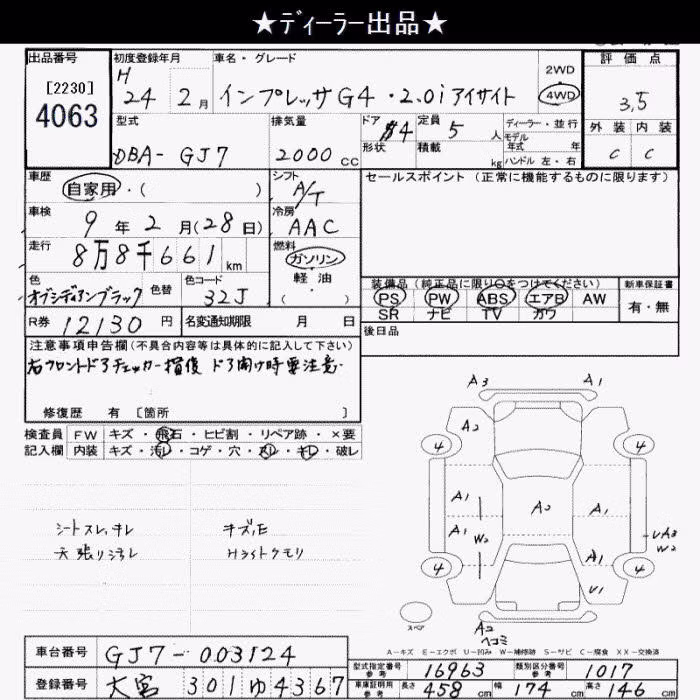 ★ディーラー出品★
出品番号 初度登録年月 車名・グレード 2WD 評価点
[2230] H 24年 2月 インプレッサG4・2.0i アイサイト 4WD 3.5
4063
型式 排気量 ドア 定員 ディーラー・並行 外装 内装
DBA-GJ7 2000cc 4 5人 モデル年式 年 C C
形状 積載 kg ハンドル 左・右
車歴 シフト セールスポイント（正常に機能するものに限ります）
自家用・( ) A/T
車検 冷房
9年 2月(28日) AAC
走行 燃料
8万8千661km ガソリン
色 色替 色コード 軽油
オブシディアンブラック 32J ( )
装備品（純正品に限り○をつけてください） 新車保証書
PS PW ABS エアB AW 有・無
SR ナビ TV カワ
R券 12130円 名変通知期限 月 日 後日品
注意事項申告欄（不具合内容等は具体的に記入して下さい）
右フロントドアチェッカー損傷 ドア開け時要注意.
修復歴 有 [箇所 ]
検査員 FW キズ・飛石・ヒビ割・リペア跡・×要
記入欄 内装 キズ・汚レ・コゲ・穴・スレ・キレ・破レ
シートスレ,キレ キズ,E
天張り汚レ Hライトクモリ
A3 A1
A2
4 4
A1 A2 A1
A1 W2 UA3
W2
A1
4 4
U1
スペア A2
ヘコミ
A-キズ E-エクボ U-凹み W-補修跡 S-サビ C-腐食 XX-交換済
車台番号 GJ7-003124
型式指定番号 参考 16963 類別区分番号 参考 1017
登録番号 大宮 301 ゆ 4367
車庫証明用 参考 長さ 458cm 幅 174cm 高さ 146cm